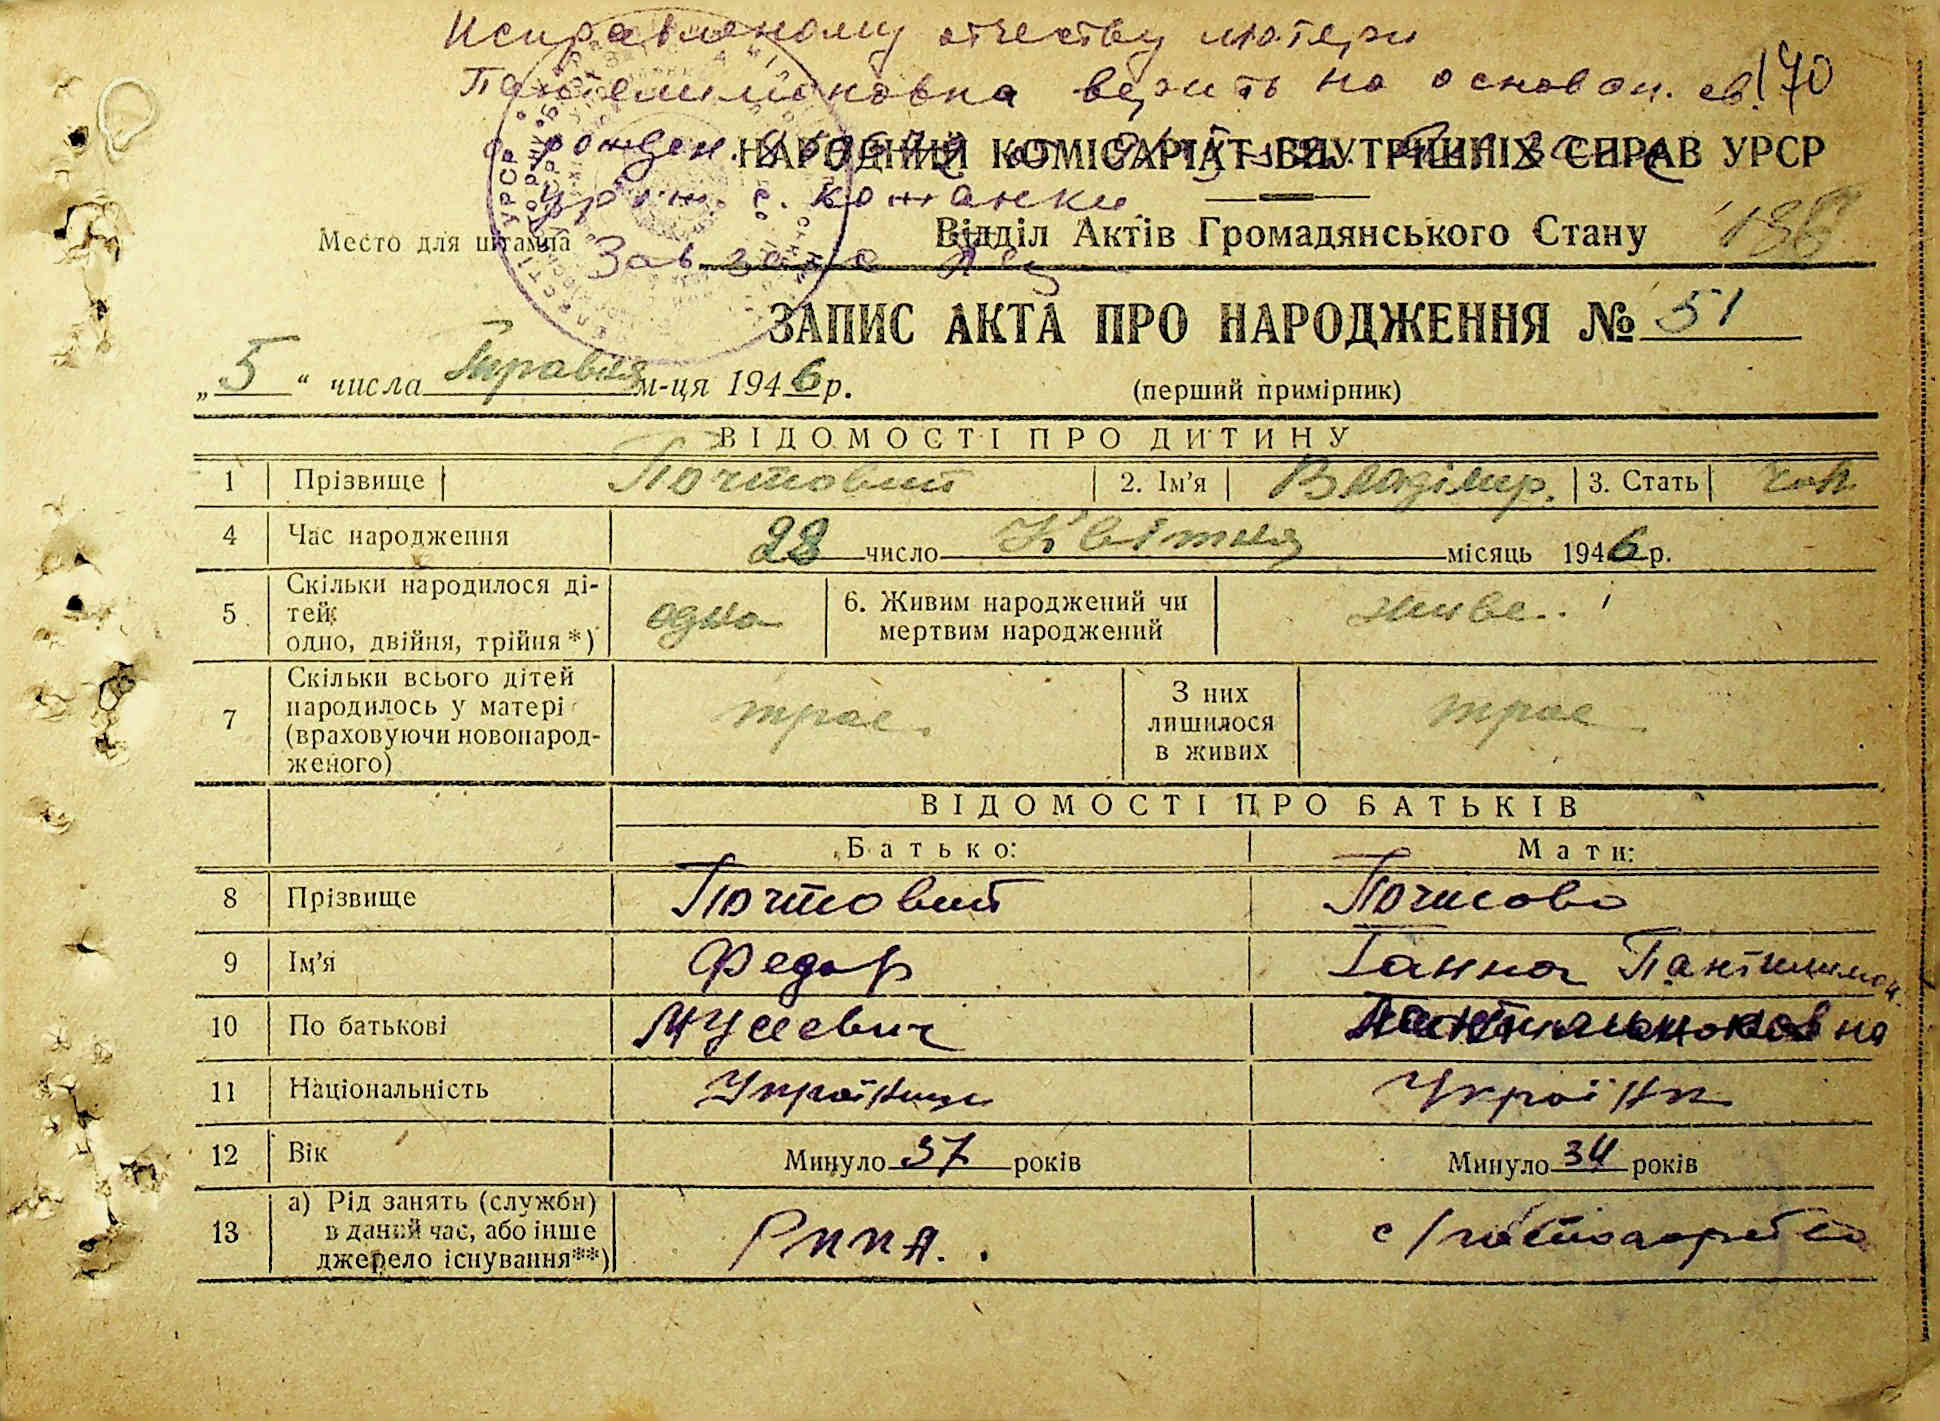 Исправленому отчеству матери
Пантелимоновна верить на основан. св.
170
рожден.
НАРОДНИЙ КОМІСАРІАТ ВНУТРІШНІХ СПРАВ УРСР
с. Кожанки
Место для штампа
Відділ Актів Громадянського Стану
Зав. загс
ЗАПИС АКТА ПРО НАРОДЖЕННЯ № 51
„5“ числа Травня м-ця 1946 р.
(перший примірник)
ВІДОМОСТІ ПРО ДИТИНУ
1 Прізвище Почтовий 2. Ім'я Владімир. 3. Стать чол
4 Час народження 28 число Квітня місяць 1946 р.
5 Скільки народилося ді-
тей:
одно, двійня, трійня *) одна
6. Живим народжений чи
мертвим народжений живе..
7 Скільки всього дітей
народилось у матері
(враховуючи новонарод-
женого) троє.
З них
лишилося
в живих троє
ВІДОМОСТІ ПРО БАТЬКІВ
Батько: Мати:
8 Прізвище Почтовий
9 Ім'я Федор Ганна
10 По батькові Мусеевич
11 Національність Українець Українк
12 Вік Минуло 37 років Минуло 34 років
13 а) Рід занять (служби)
в даний час, або інше
джерело існування**)